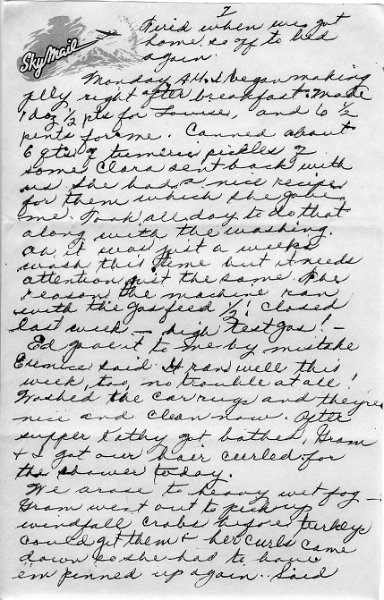 2
Sky Mail
Tired when we got
home so off to bed
again.
Monday A.M. I began making
jelly right after breakfast. Made
1 doz ½ pts for Louise, and 6 ½
pints for me. Canned about
6 qts of tumeric pickles of
some Clara sent back with
us. She had a nice recipe
for them which she gave
me. Took all day to do that
along with the washing.
Oh, it was just a weeks
wash this time but it needs
attention just the same. The
reason the machine ran
with the gas feed ½ closed
last week — high test gas! —
Ed gave it to me by mistake
Eunice said. It ran well this
week, too, no trouble at all!
Washed the car rugs and they're
nice and clean now. After
supper Kathy got bathed, Gram
& I got our hair curled for
the shower today.
We arose to heavy wet fog —
Gram went out to pick up
windfall crabs before turkeys
could get them & her curls came
down so she had to have
'em pinned up again. Said